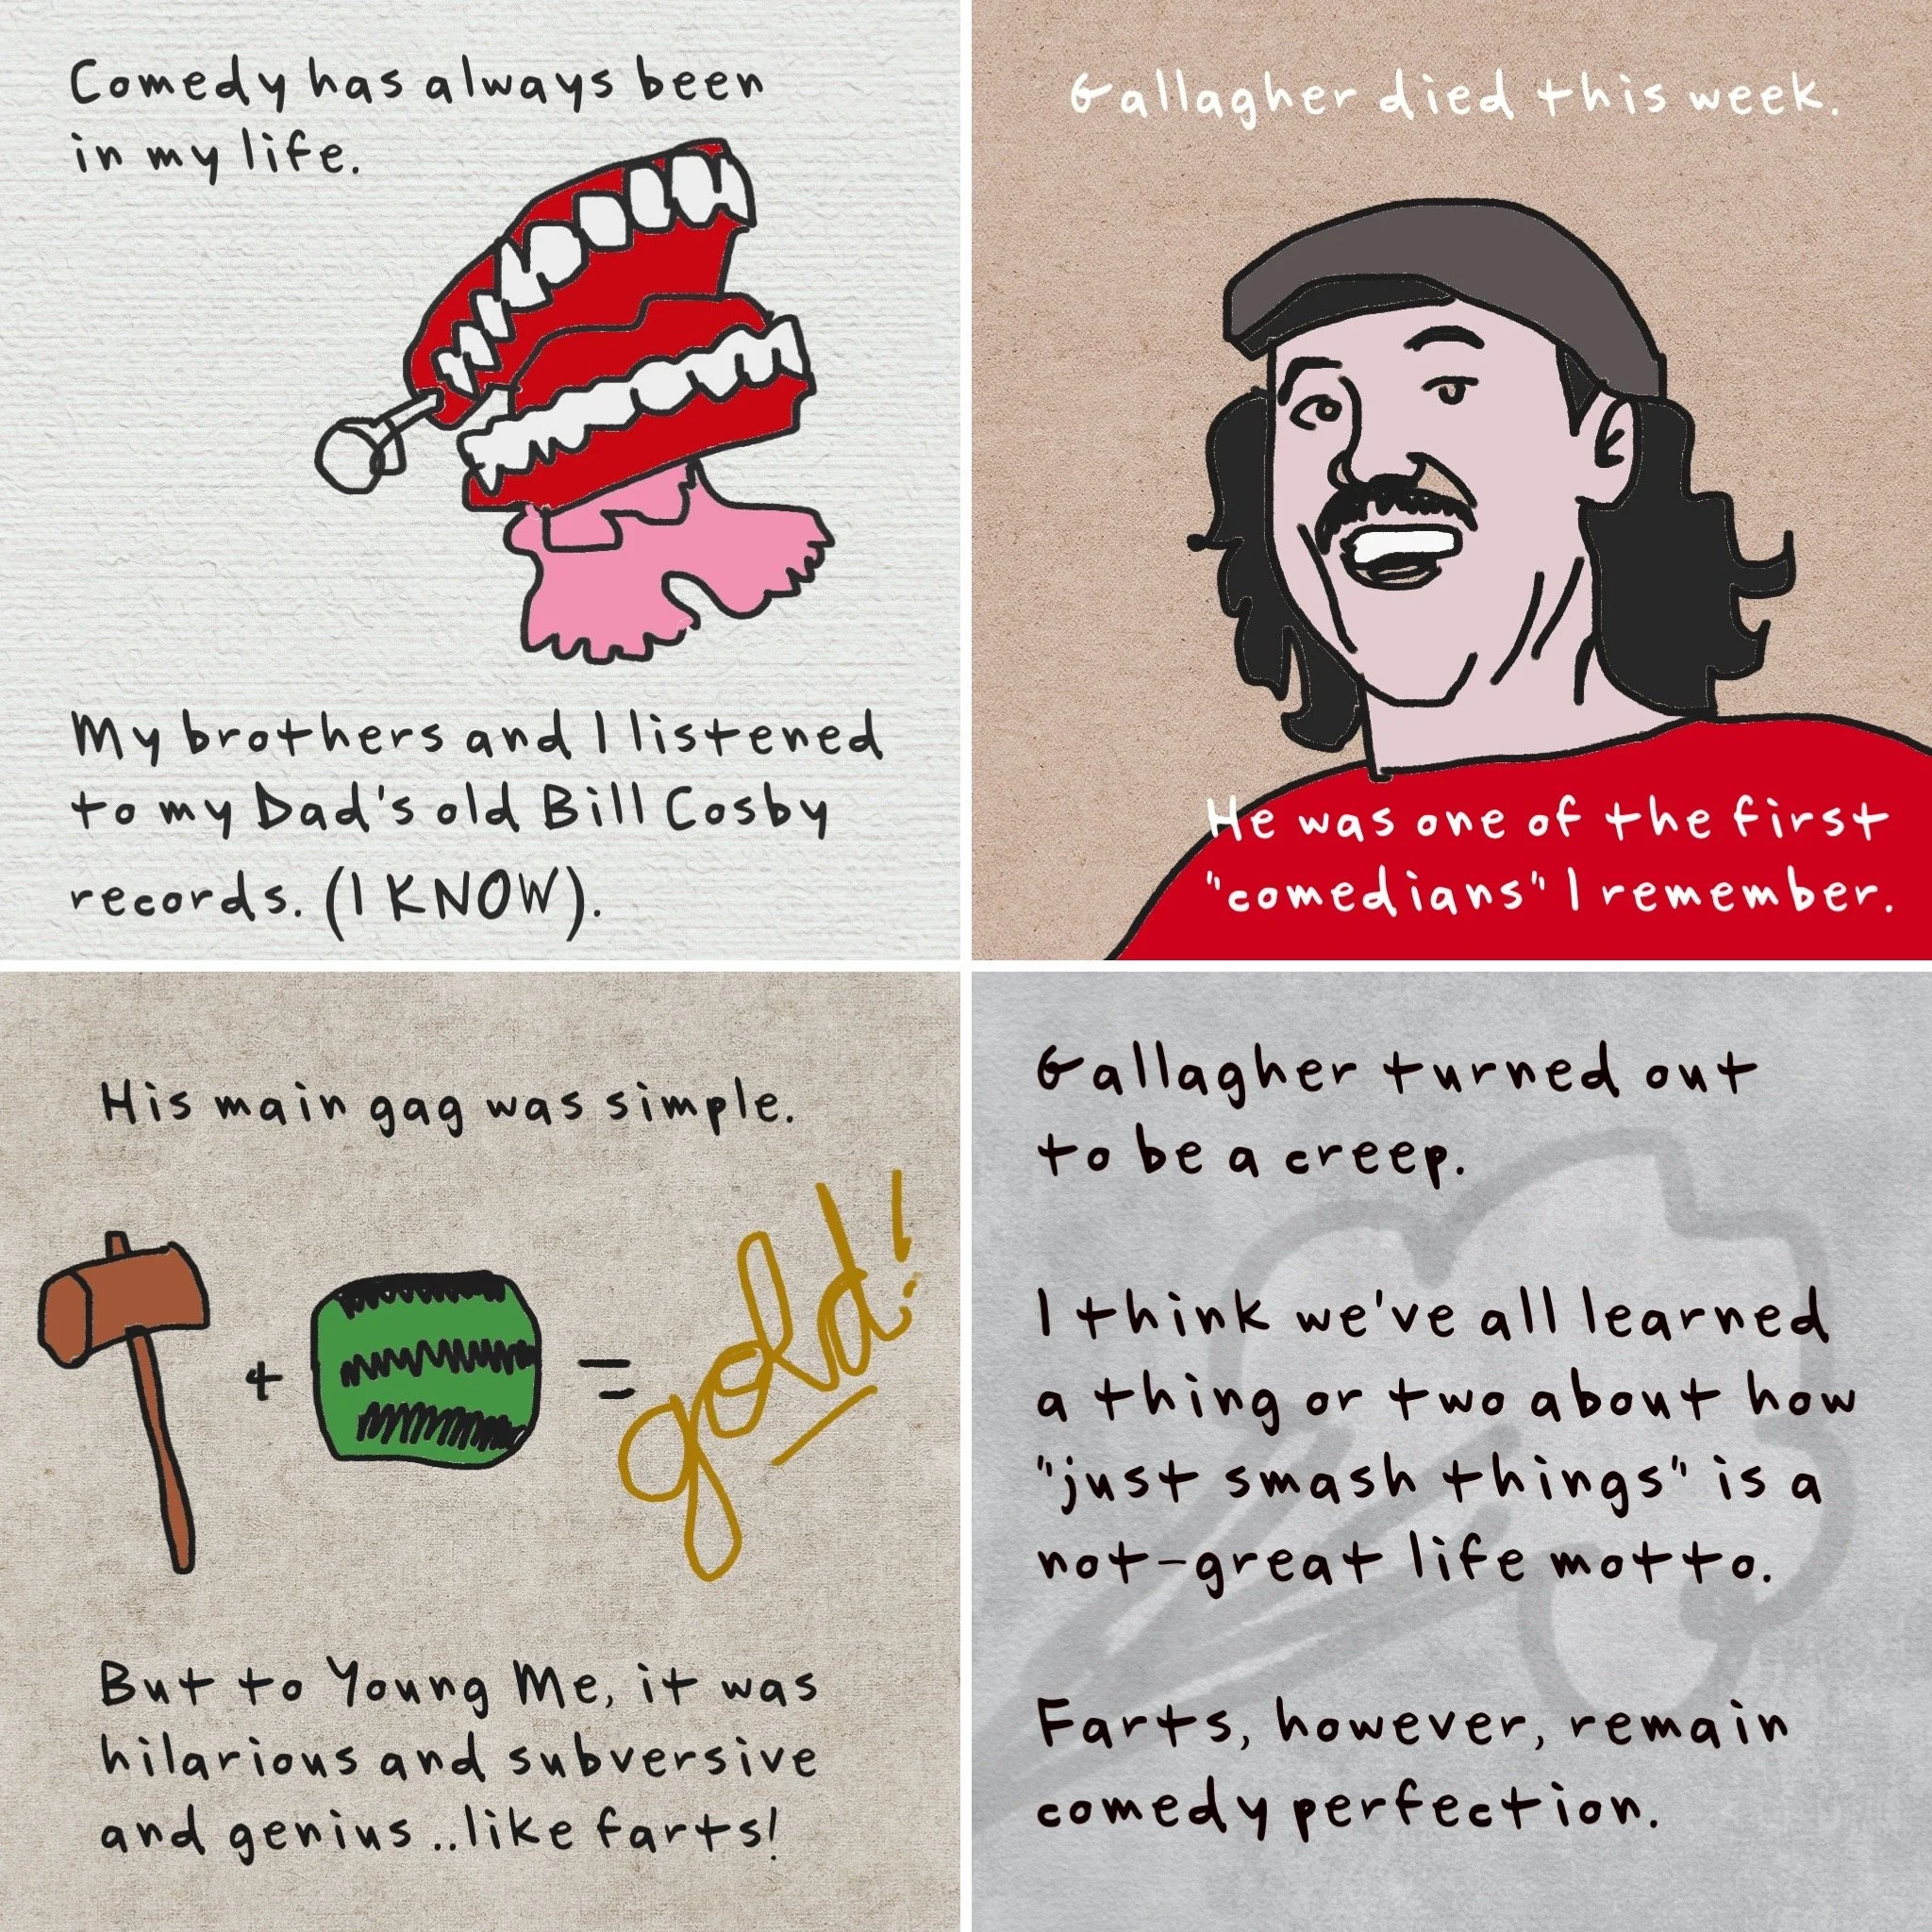 Comedy has always been
in my life.
My brothers and I listened
to my Dad's old Bill Cosby
records. (I KNOW).
Gallagher died this week.
He was one of the first
"comedians" I remember.
His main gag was simple.
+ = gold!
But to Young Me, it was
hilarious and subversive
and genius ..like farts!
Gallagher turned out
to be a creep.
I think we've all learned
a thing or two about how
"just smash things" is a
not-great life motto.
Farts, however, remain
comedy perfection.